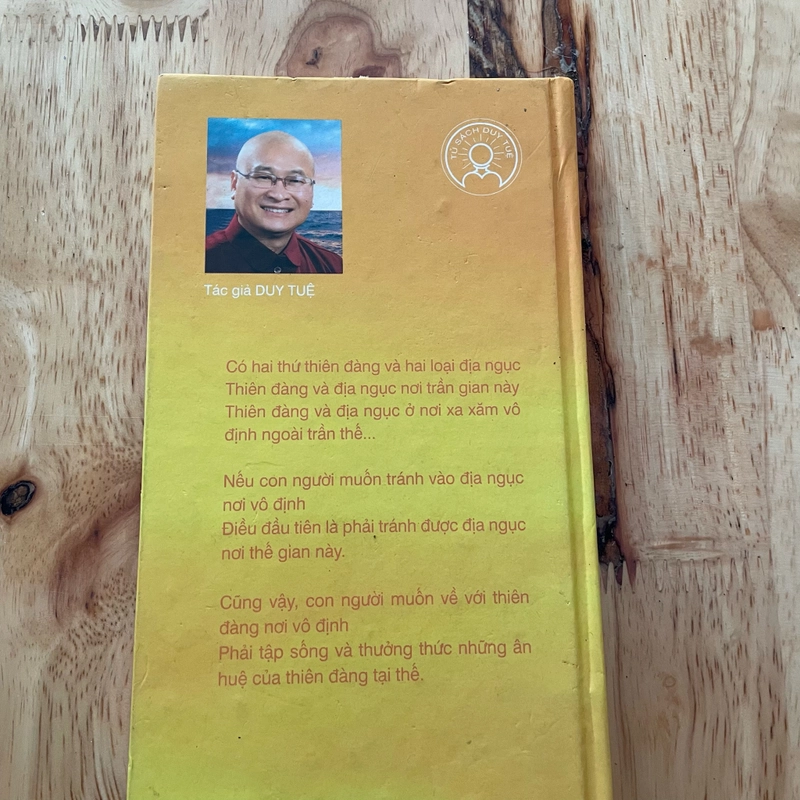 TỦ SÁCH DUY TUỆ
Tác giả DUY TUỆ
Có hai thứ thiên đàng và hai loại địa ngục
Thiên đàng và địa ngục nơi trần gian này
Thiên đàng và địa ngục ở nơi xa xăm vô
định ngoài trần thế...
Nếu con người muốn tránh vào địa ngục
nơi vô định
Điều đầu tiên là phải tránh được địa ngục
nơi thế gian này.
Cũng vậy, con người muốn về với thiên
đàng nơi vô định
Phải tập sống và thưởng thức những ân
huệ của thiên đàng tại thế.